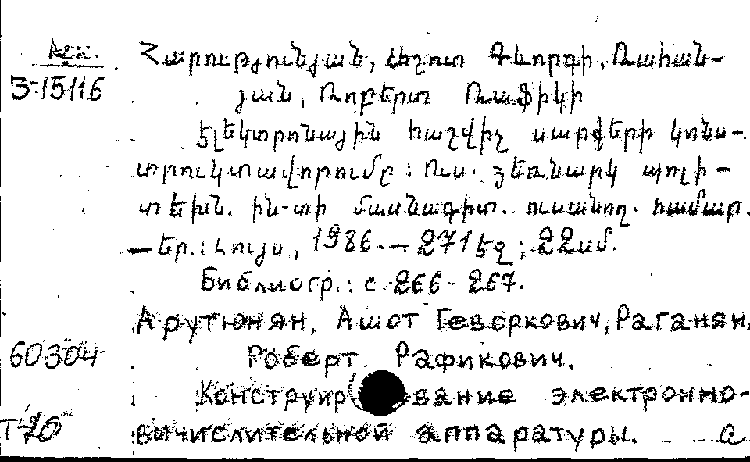 Арм. Հարությունյան, Աշոտ Գևորգի, Ռահան-
3-15116 յան, Ռոբերտ Ռաֆիկի
Էլեկտրոնային հաշվիչ սարքերի կոնս-
տրուկտավորումը: Ուս. ձեռնարկ պոլի-
տեխն. ին-տի մասնագիտ. ուսանող. համար.
— Եր.: Լույս, 1986. — 271 էջ; 22 սմ.
Библиогр.: с. 266-267.
Арутюнян, Ашот Геворкович, Раганян,
60304 Роберт Рафикович.
Конструирование электронно-
Т-20 вичислительной аппаратуры. а